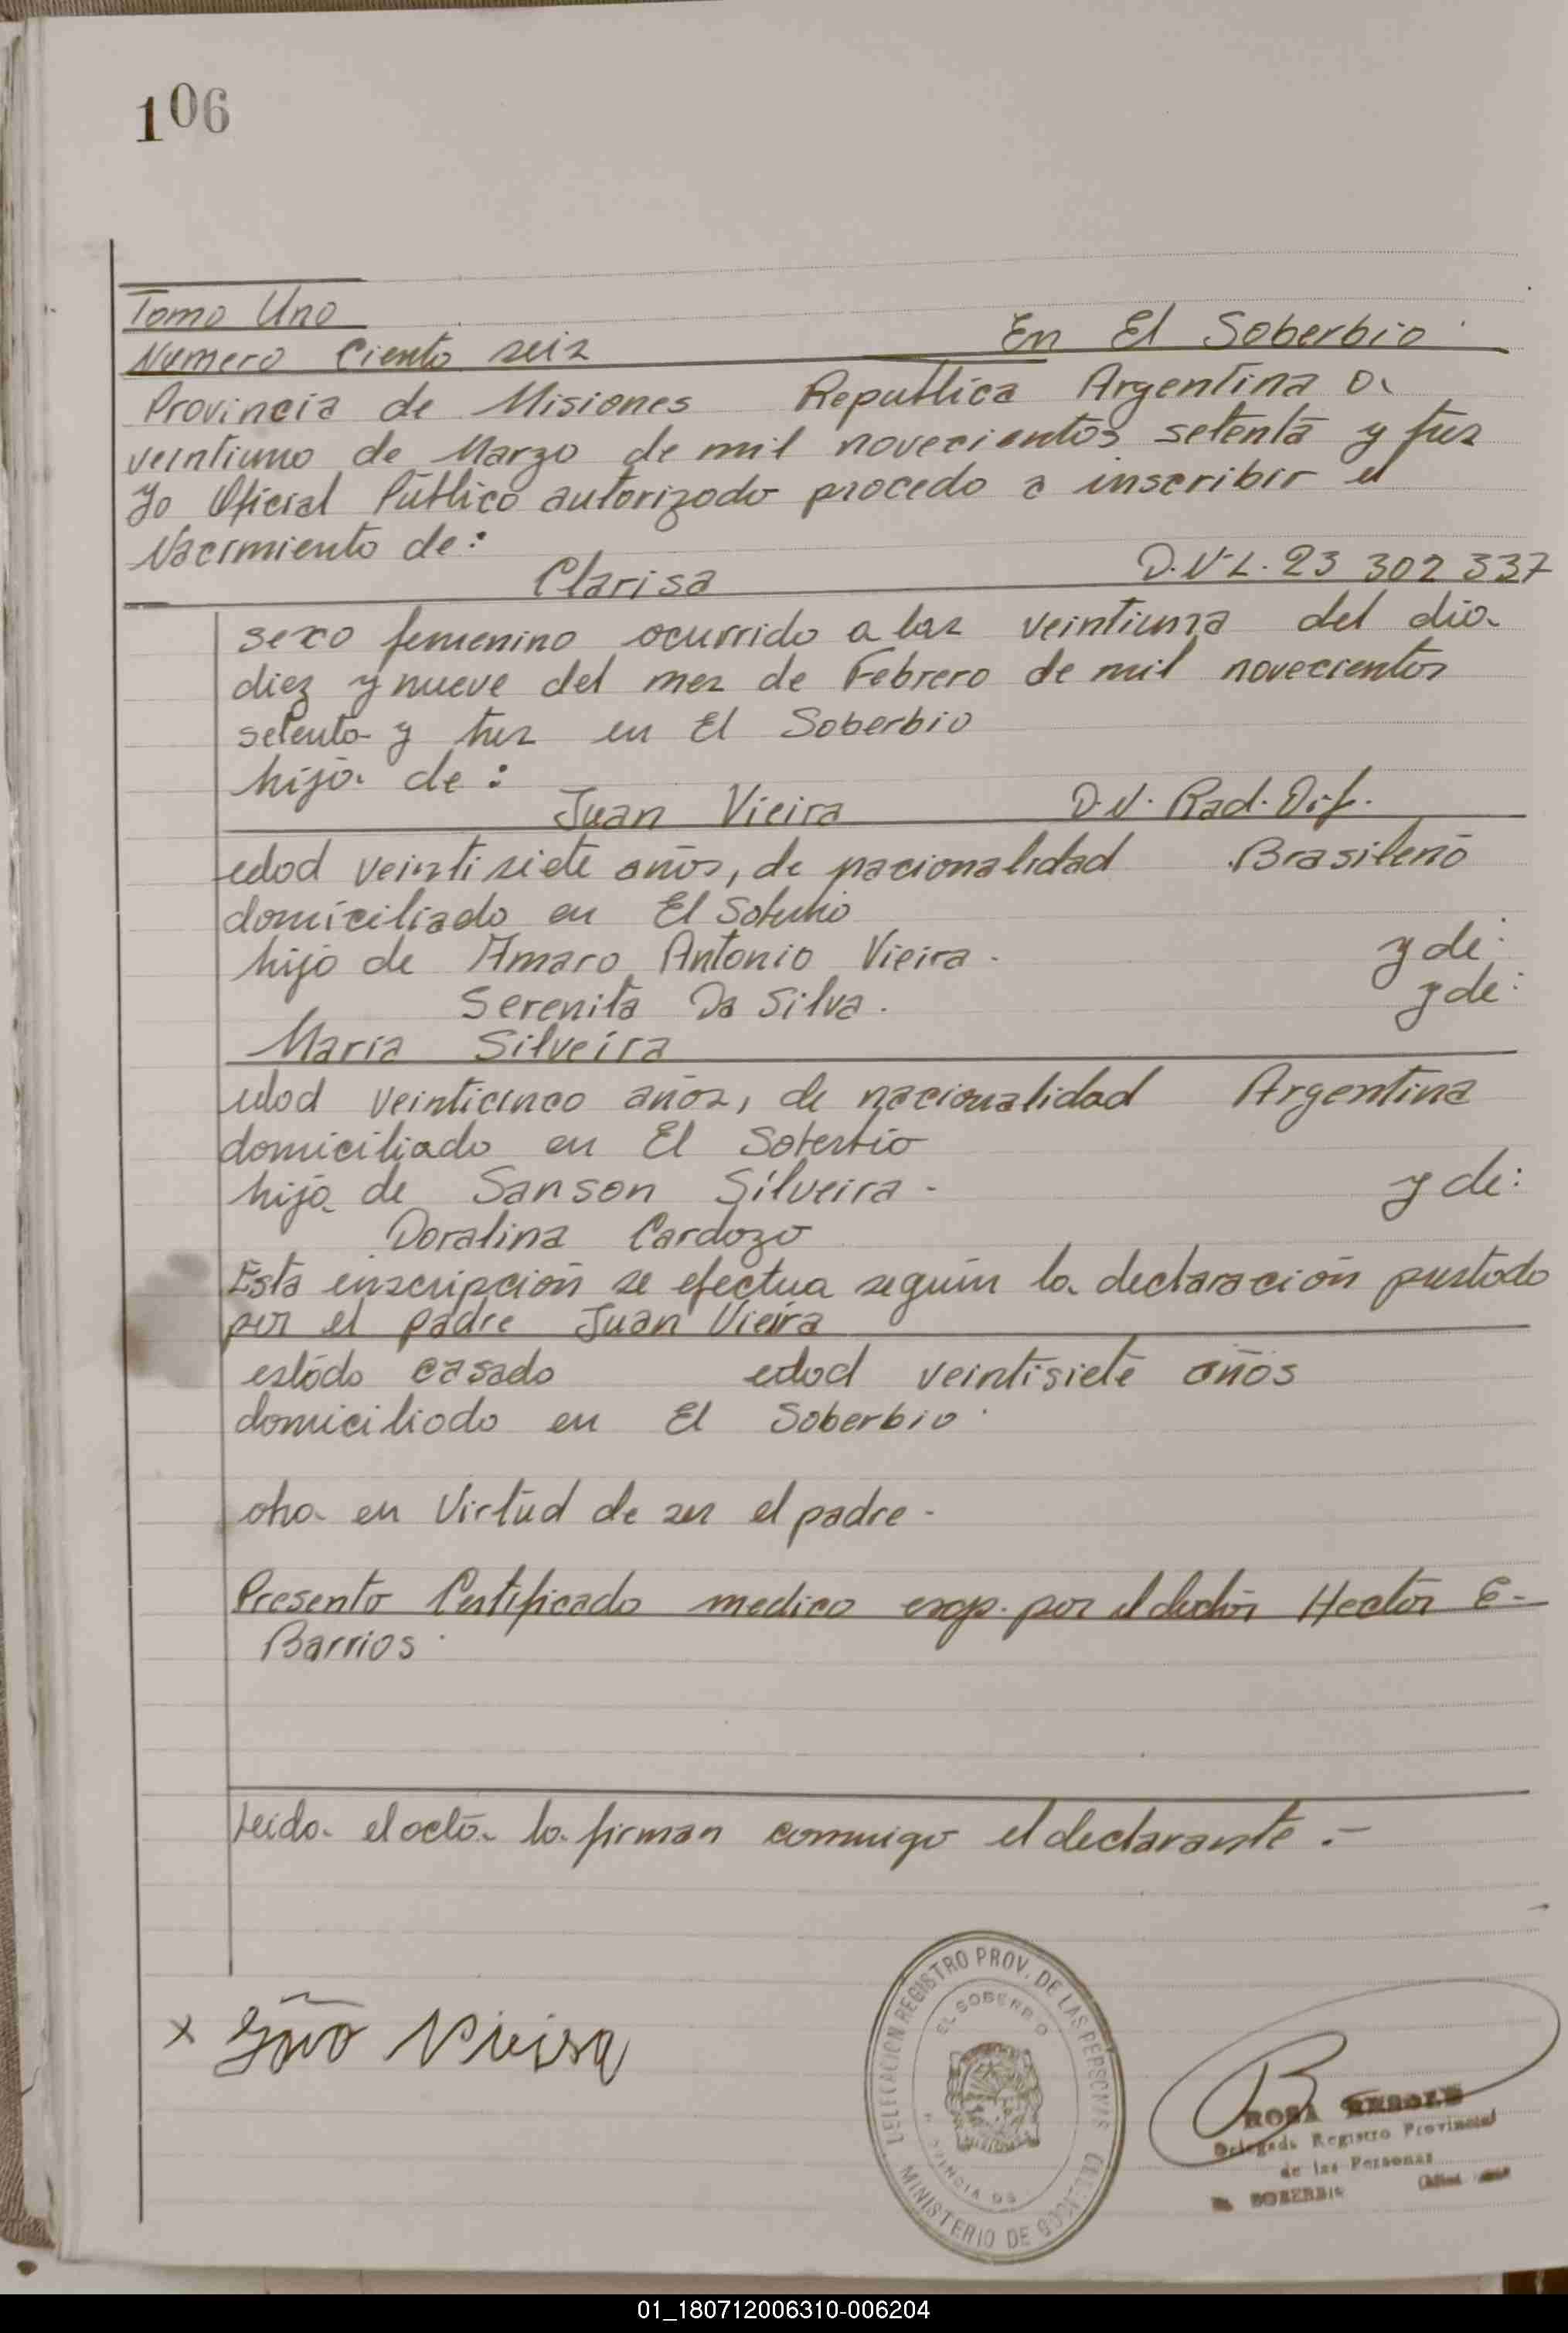 106
Tomo Uno
Numero Ciento seis En El Soberbio
Provincia de Misiones Republica Argentina a
veintiuno de Marzo de mil novecientos setenta y tres
Yo Oficial Público autorizado procedo a inscribir el
Nacimiento de:
Clarisa D.N.I. 23 302 337
sexo femenino ocurrido a las veintiuna del dia
diez y nueve del mes de Febrero de mil novecientos
setenta y tres en El Soberbio
hija de:
Juan Vieira D.N. Rad. Dif.
edad veintisiete años, de nacionalidad Brasileño
domiciliado en El Soberbio
hijo de Amaro Antonio Vieira. y de:
Serenita Da Silva. y de:
Maria Silveira
edad veinticinco años, de nacionalidad Argentina
domiciliado en El Soberbio
hija de Sanson Silveira. y de:
Doralina Cardozo
Esta inscripción se efectua según la declaración prestada
por el padre Juan Vieira
estado casado edad veintisiete años
domiciliado en El Soberbio.
obra en Virtud de ser el padre.
Presento Certificado medico exp. por el doctor Hector E.
Barrios.
Leida el acta la firman conmigo el declarante.-
x João Vieira
DELEGACION REGISTRO PROV. DE LAS PERSONAS
EL SOBERBIO
PROVINCIA DE
MINISTERIO DE GOBIERNO
ROSA
Delegada Registro Provincial
de las Personas
EL SOBERBIO
01_180712006310-006204